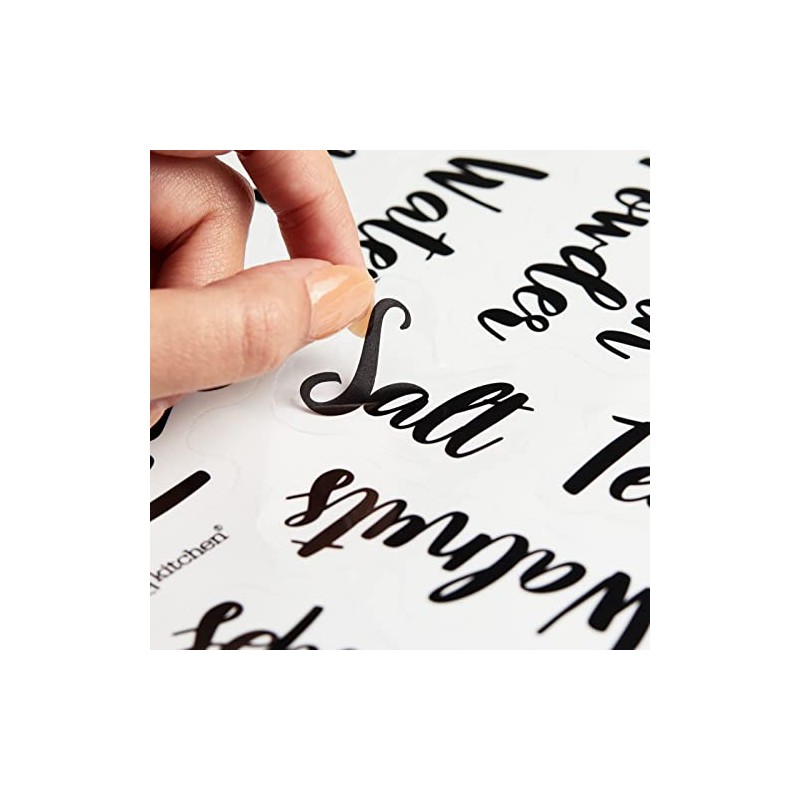 Wate
Powder
Salt
Te
Walnuts
kitchen®